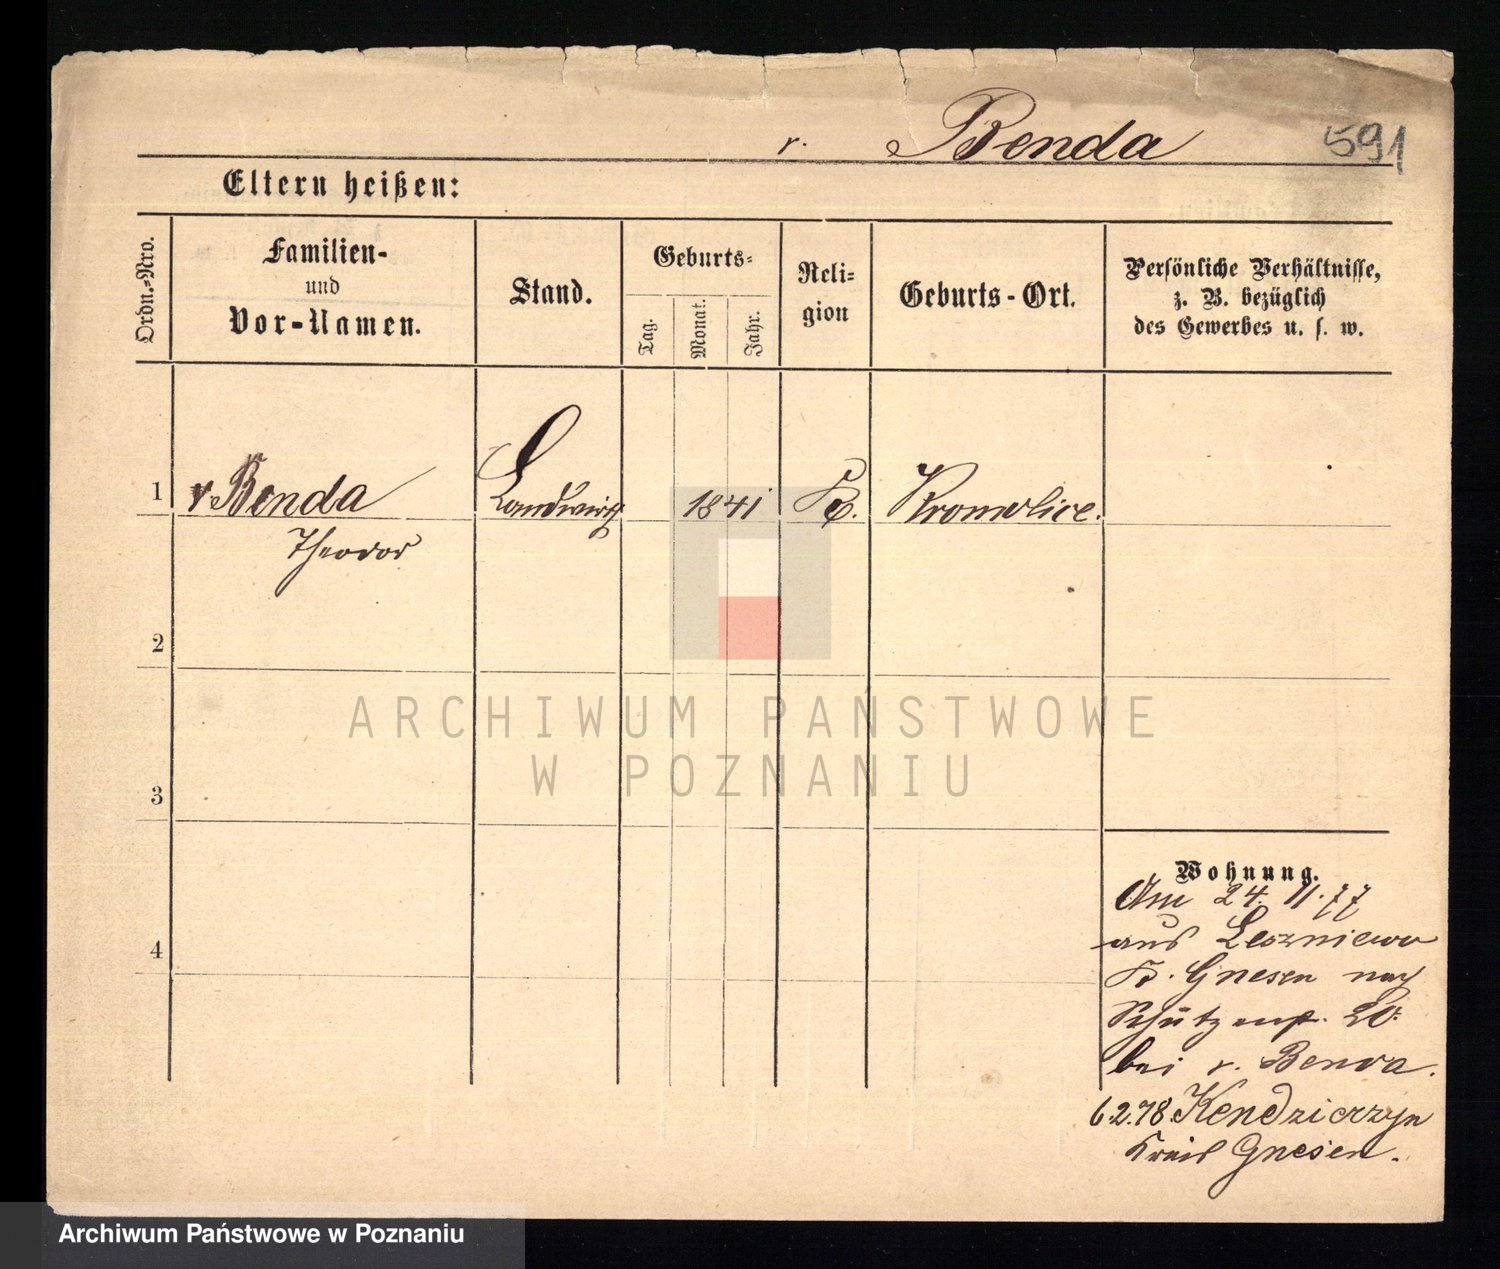 v. Benda 591
Eltern heißen:
Ordn.-Nro.
Familien-
und
Vor-Namen.
Stand.
Geburts-
Tag.
Monat.
Jahr.
Reli-
gion
Geburts-Ort.
Persönliche Verhältnisse,
z. B. bezüglich
des Gewerbes u. s. w.
1 v Benda Landwirth 1841 K. Kromolice.
Theodor
2
3
4
Wohnung.
Am 24. 11. 77
aus Leszniewo
K. Gnesen nach
Schützenst. 20.
bei v. Benda.
6.2.78. Kendzierzyn
Kreis Gnesen.
ARCHIWUM PAŃSTWOWE
W POZNANIU
Archiwum Państwowe w Poznaniu